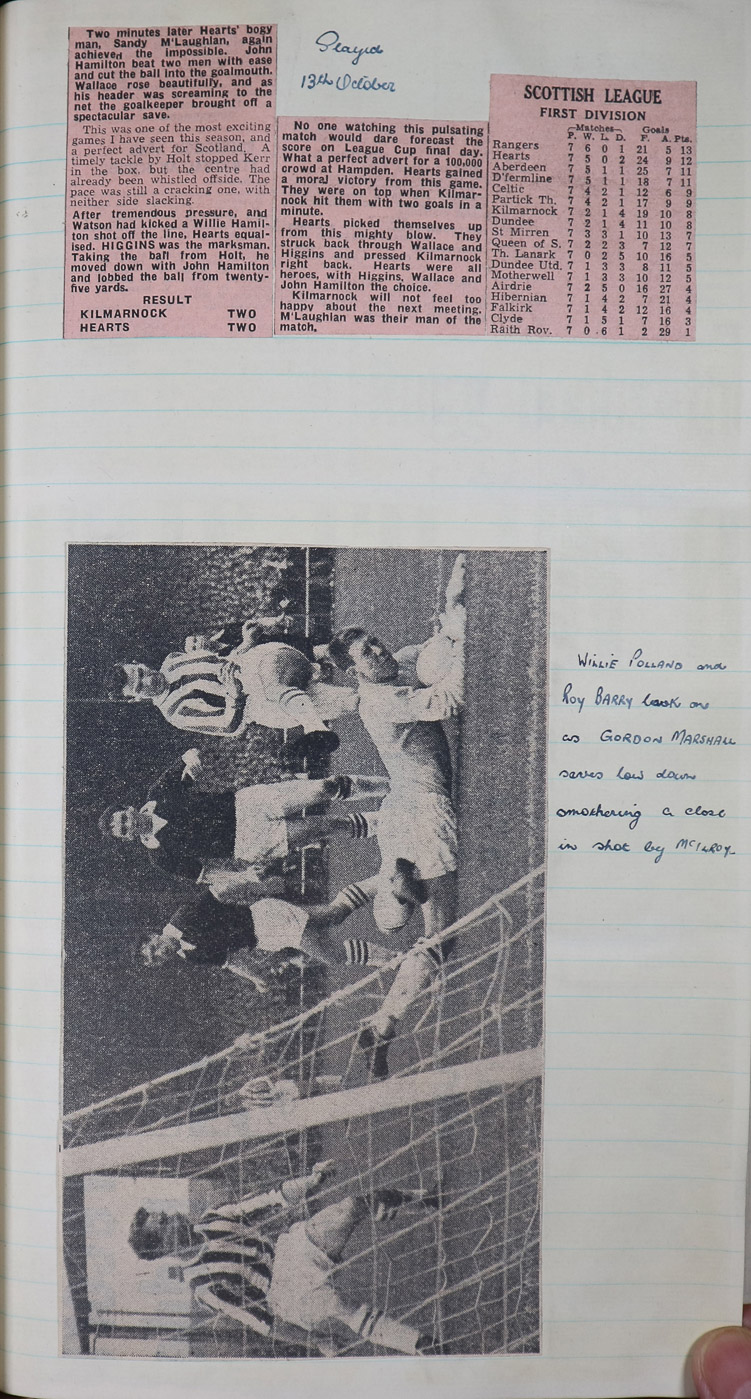 Two minutes later Hearts' bogy
man, Sandy M'Laughlan, again
achieved the impossible. John
Hamilton beat two men with ease
and cut the ball into the goalmouth.
Wallace rose beautifully, and as
his header was screaming to the
net the goalkeeper brought off a
spectacular save.
This was one of the most exciting
games I have seen this season, and
a perfect advert for Scotland. A
timely tackle by Holt stopped Kerr
in the box, but the centre had
already been whistled offside. The
pace was still a cracking one, with
neither side slacking.
After tremendous pressure, and
Watson had kicked a Willie Hamil-
ton shot off the line, Hearts equal-
ised. HIGGINS was the marksman.
Taking the ball from Holt, he
moved down with John Hamilton
and lobbed the ball from twenty-
five yards.
RESULT
KILMARNOCK TWO
HEARTS TWO
Played
13th October
No one watching this pulsating
match would dare forecast the
score on League Cup final day.
What a perfect advert for a 100,000
crowd at Hampden. Hearts gained
a moral victory from this game.
They were on top when Kilmar-
nock hit them with two goals in a
minute.
Hearts picked themselves up
from this mighty blow. They
struck back through Wallace and
Higgins and pressed Kilmarnock
right back. Hearts were all
heroes, with Higgins, Wallace and
John Hamilton the choice.
Kilmarnock will not feel too
happy about the next meeting.
M'Laughlan was their man of the
match.
SCOTTISH LEAGUE
FIRST DIVISION
Matches Goals
P. W. L. D. F. A. Pts.
Rangers 7 6 0 1 21 5 13
Hearts 7 5 0 2 24 9 12
Aberdeen 7 5 1 1 25 7 11
D'fermline 7 5 1 1 18 7 11
Celtic 7 4 2 1 12 6 9
Partick Th. 7 4 2 1 17 9 9
Kilmarnock 7 2 1 4 19 10 8
Dundee 7 2 1 4 11 10 8
St Mirren 7 3 3 1 10 13 7
Queen of S. 7 2 2 3 7 12 7
Th. Lanark 7 0 2 5 10 16 5
Dundee Utd. 7 1 3 3 8 11 5
Motherwell 7 1 3 3 10 12 5
Airdrie 7 2 5 0 16 27 4
Hibernian 7 1 4 2 7 21 4
Falkirk 7 1 4 2 12 16 4
Clyde 7 1 5 1 7 16 3
Raith Rov. 7 0 6 1 2 29 1
WILLIE POLLAND and
ROY BARRY look on
as GORDON MARSHALL
saves low down
smothering a close
in shot by McILROY